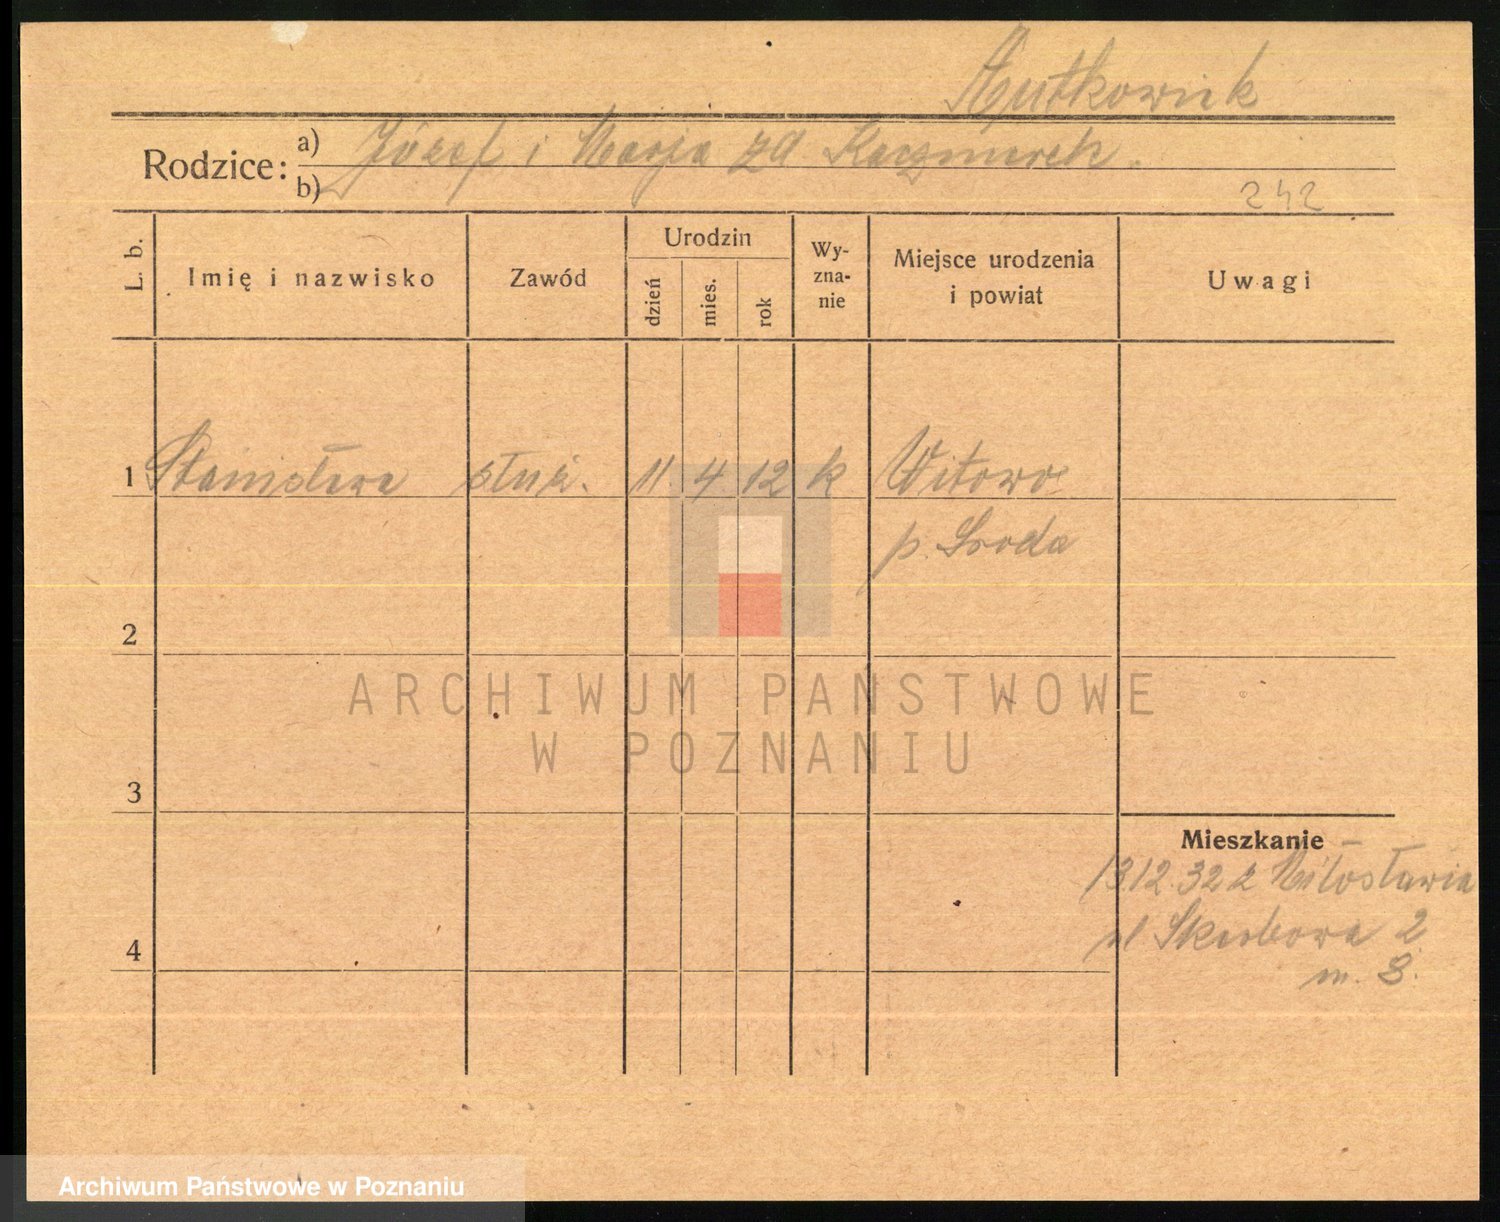 Rutkowiak
Rodzice: a) Józef i Marja zd Kaczmarek.
b)
242
L. b. Imię i nazwisko Zawód Urodzin dzień mies. rok Wy-zna-nie Miejsce urodzenia i powiat Uwagi
1 Stanisława służ. 11 4 12 k Witowo
p. Środa
2
ARCHIWUM PAŃSTWOWE
W POZNANIU
3
Mieszkanie
13.12.32 z Miłosławia
ul Skarbowa 2
4
m. 8.
Archiwum Państwowe w Poznaniu